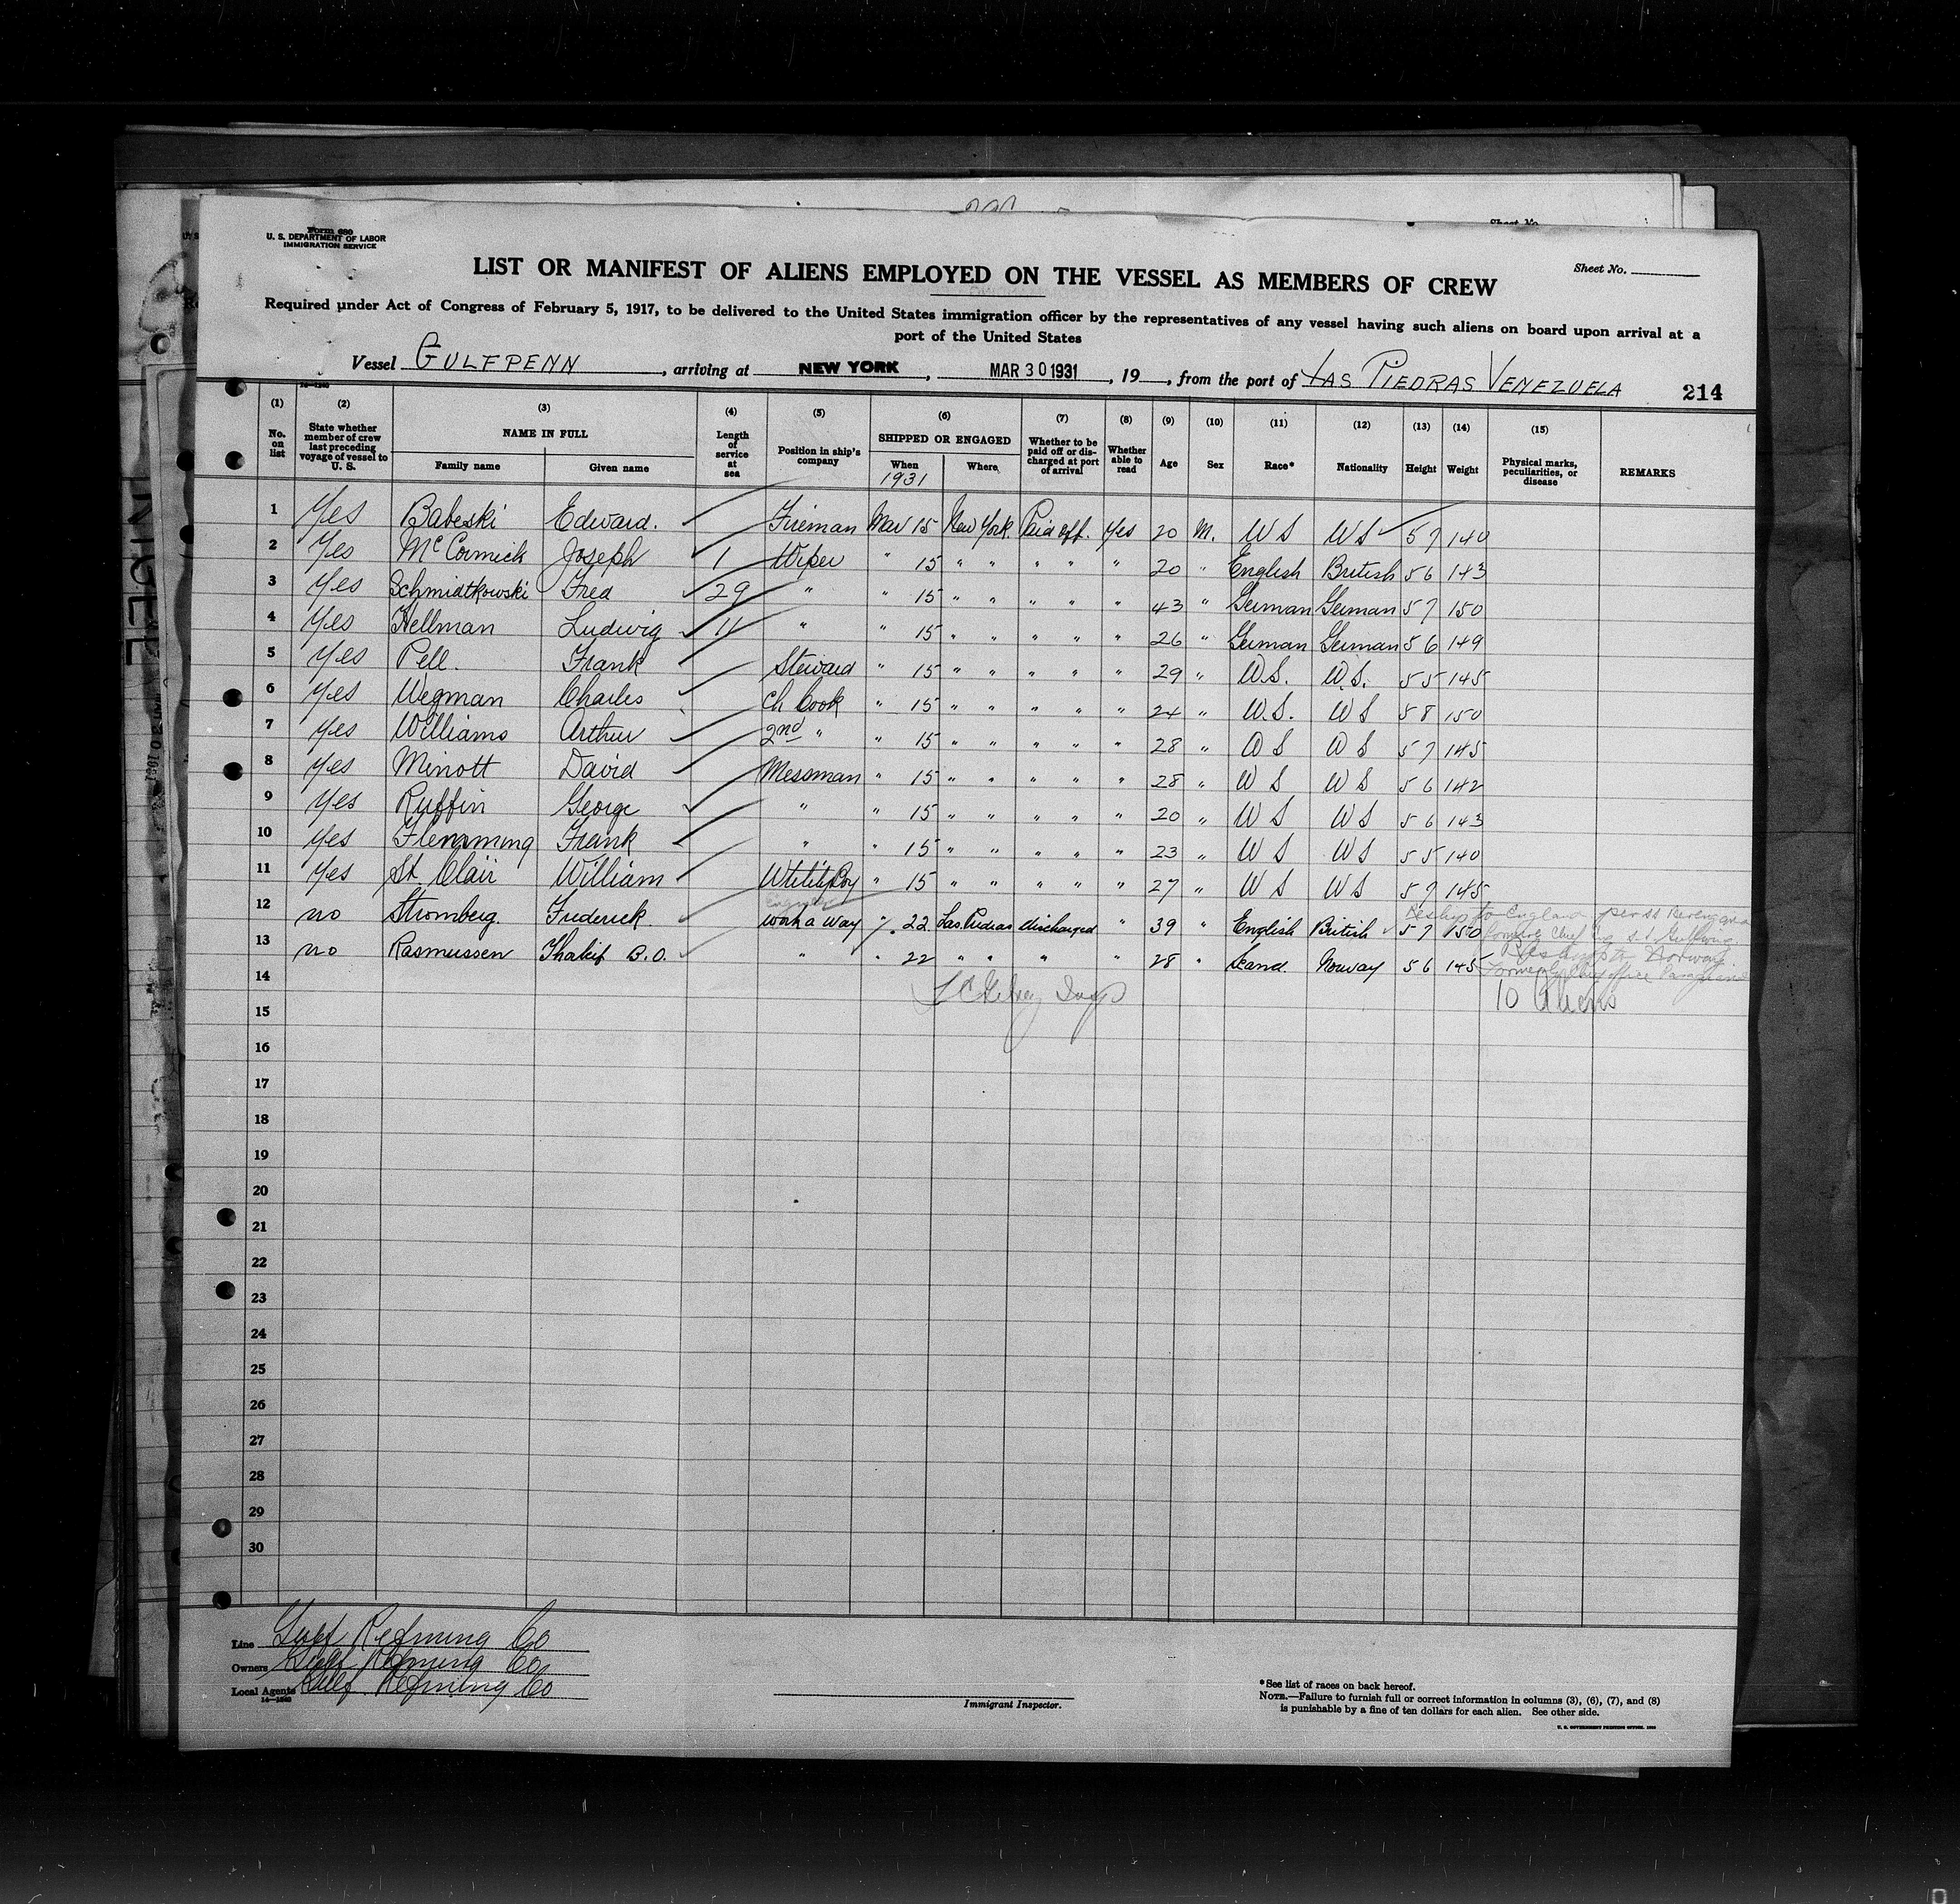 Form 680
U. S. DEPARTMENT OF LABOR
IMMIGRATION SERVICE
Sheet No.
LIST OR MANIFEST OF ALIENS EMPLOYED ON THE VESSEL AS MEMBERS OF CREW
Required under Act of Congress of February 5, 1917, to be delivered to the United States immigration officer by the representatives of any vessel having such aliens on board upon arrival at a
port of the United States
Vessel GULFPENN, arriving at NEW YORK, MAR 30 1931, 19__, from the port of LAS PIEDRAS VENEZUELA 214
(1) (2) (3) (4) (5) (6) (7) (8) (9) (10) (11) (12) (13) (14) (15)
No. on list | State whether member of crew last preceding voyage of vessel to U. S. | NAME IN FULL Family name Given name | Length of service at sea | Position in ship's company | SHIPPED OR ENGAGED When 1931 Where | Whether to be paid off or discharged at port of arrival | Whether able to read | Age | Sex | Race* | Nationality | Height | Weight | Physical marks, peculiarities, or disease | REMARKS
1 Yes Babeski Edward. Fireman Mar 15 New York Paid off. Yes 20 M. U S U S 5 7 140
2 Yes McCormick Joseph 1 Wiper " 15 " " " " " 20 " English British 5 6 143
3 Yes Schmidtkowski Fred 29 " " 15 " " " " " 43 " German German 5 7 150
4 Yes Hellman Ludwig 11 " " 15 " " " " " 26 " German German 5 6 149
5 Yes Pell. Frank Steward " 15 " " " " " 29 " U.S. U.S. 5 5 145
6 Yes Wegman Charles Ch Cook " 15 " " " " " 24 " U.S. U S 5 8 150
7 Yes Williams Arthur 2nd " " 15 " " " " " 28 " U S U S 5 7 145
8 Yes Minott David Messman " 15 " " " " " 28 " U S U S 5 6 142
9 Yes Ruffin George " " 15 " " " " " 20 " U S U S 5 6 143
10 Yes Flemming Frank " " 15 " " " " " 23 " U S U S 5 5 140
11 Yes St Clair William Utility Boy " 15 " " " " " 27 " U S U S 5 7 145
12 no Stromberg. Frederick. Work a Way " 22 Las Piedras discharged " 39 " English British 5 7 150 Reship to England per ss
13 no Rasmussen B.O. " " 22 " " " " 28 " Scand. Norway 5 6 145 Norway
14
10 Aliens
15
16
17
18
19
20
21
22
23
24
25
26
27
28
29
30
Line Gulf Refining Co
Owners Gulf Refining Co
Local Agents Gulf Refining Co
14—1240
Immigrant Inspector.
*See list of races on back hereof.
NOTE.—Failure to furnish full or correct information in columns (3), (6), (7), and (8)
is punishable by a fine of ten dollars for each alien. See other side.